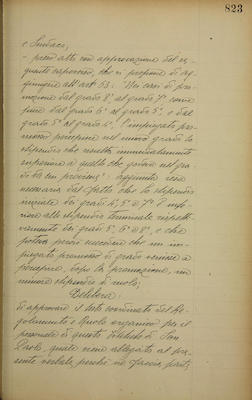 823
e Sindaci,
- presi atto con approvazione del se-
guente capoverso, che si propone di ag-
giungere all'art. 63: "Nei casi di pro-
mozione dal grado 8° al grado 7° come
pure dal grado 6° al grado 5°, e dal
grado 5° al grado 4°, l'impiegato pro-
mosso percepisce nel nuovo grado lo
stipendio che risulta immediatamente
superiore a quello che godeva nel gra-
do di provenienza": aggiunta resa
necessaria dal fatto che lo stipendio
iniziale dei gradi 4°, 5° e 7° è infe-
riore allo stipendio terminale rispetti-
vamente dei gradi 5°, 6° e 8°, e che
poteva perciò succedere che un im-
piegato promosso di grado venisse a
percepire, dopo la promozione, un
minore stipendio di ruolo;
Delibera:
di approvare il testo coordinato del Re-
golamento e Ruolo organico per il
personale di questo Istituto di San
Paolo, quale viene allegato al pre-
sente verbale perché ne faccia parte